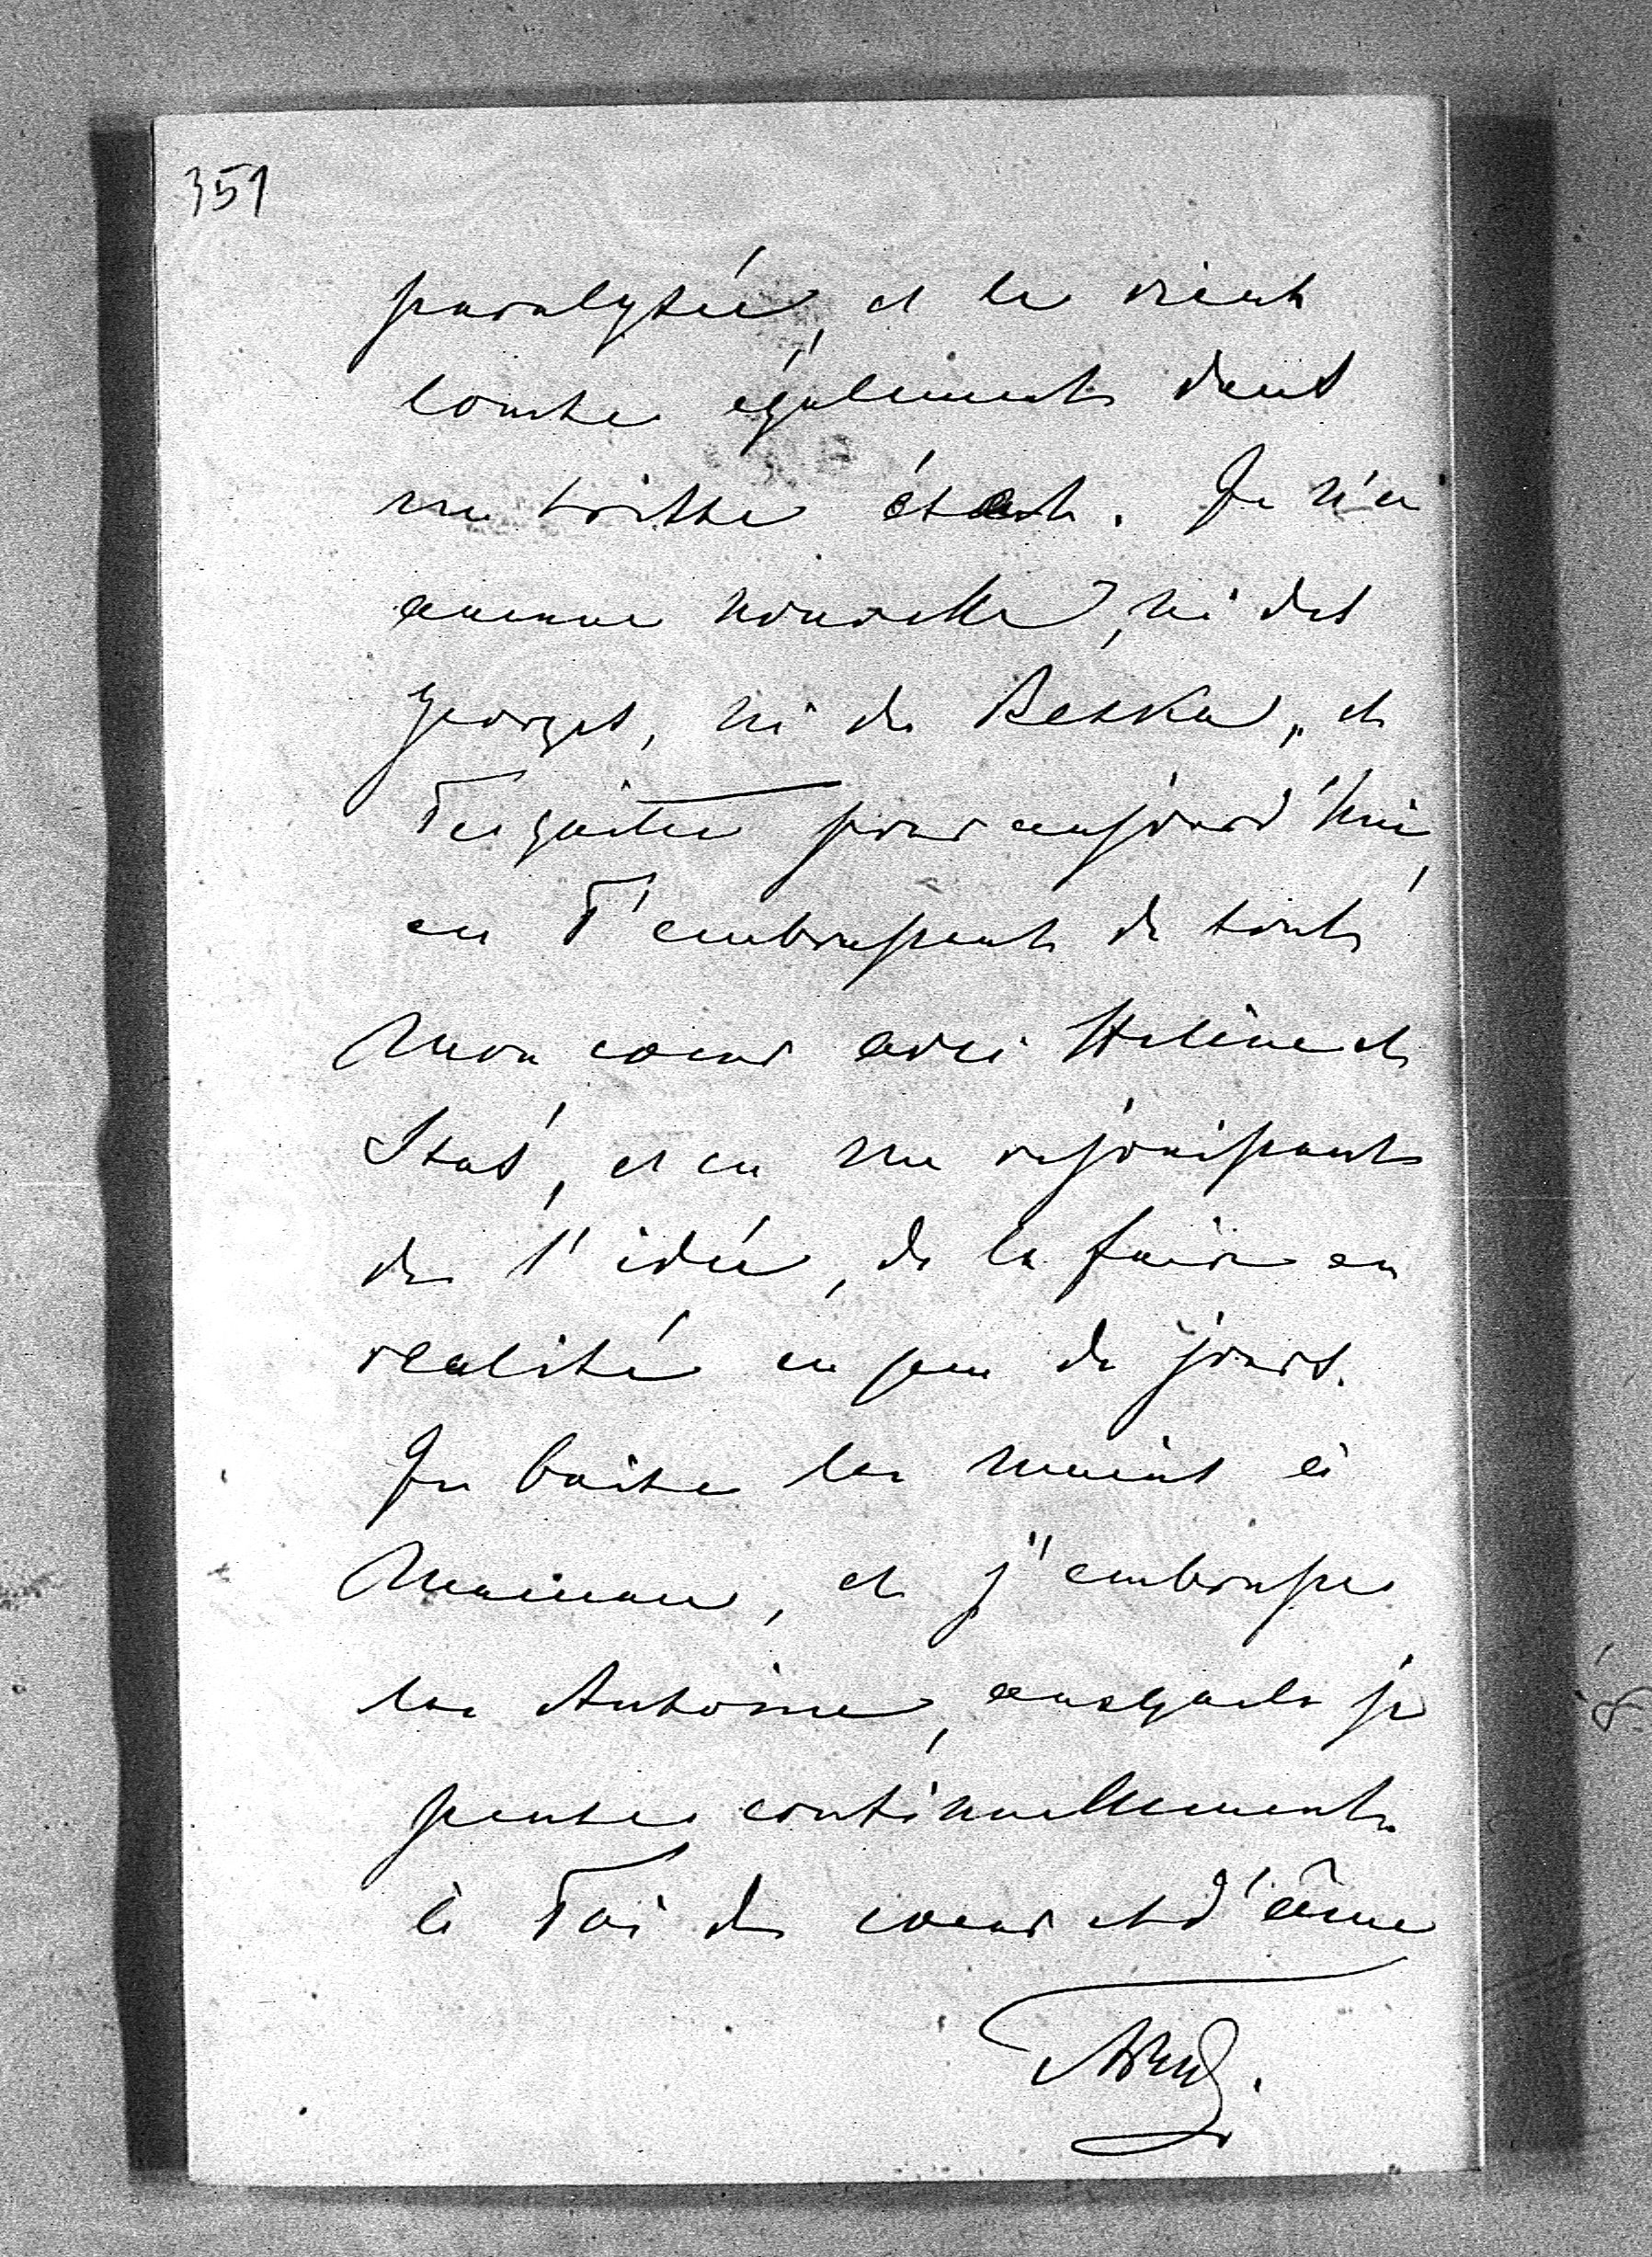 351
paralysée, et le vieux
comte également dans
un triste état. Je n'ai
aucune nouvelle, ni des
Georges, ni de Beska, et
Te quitte pour aujourd'hui,
en T'embrassant de tout
mon coeur avec Helène et
Stas, et en me rejouissant
de l'idée, de le faire en
realité en peu de jours.
Je baise les mains à
Maman, et j'embrasse
les Antoine, auxquels je
pense continuellement.
à Toi de coeur et d'âme